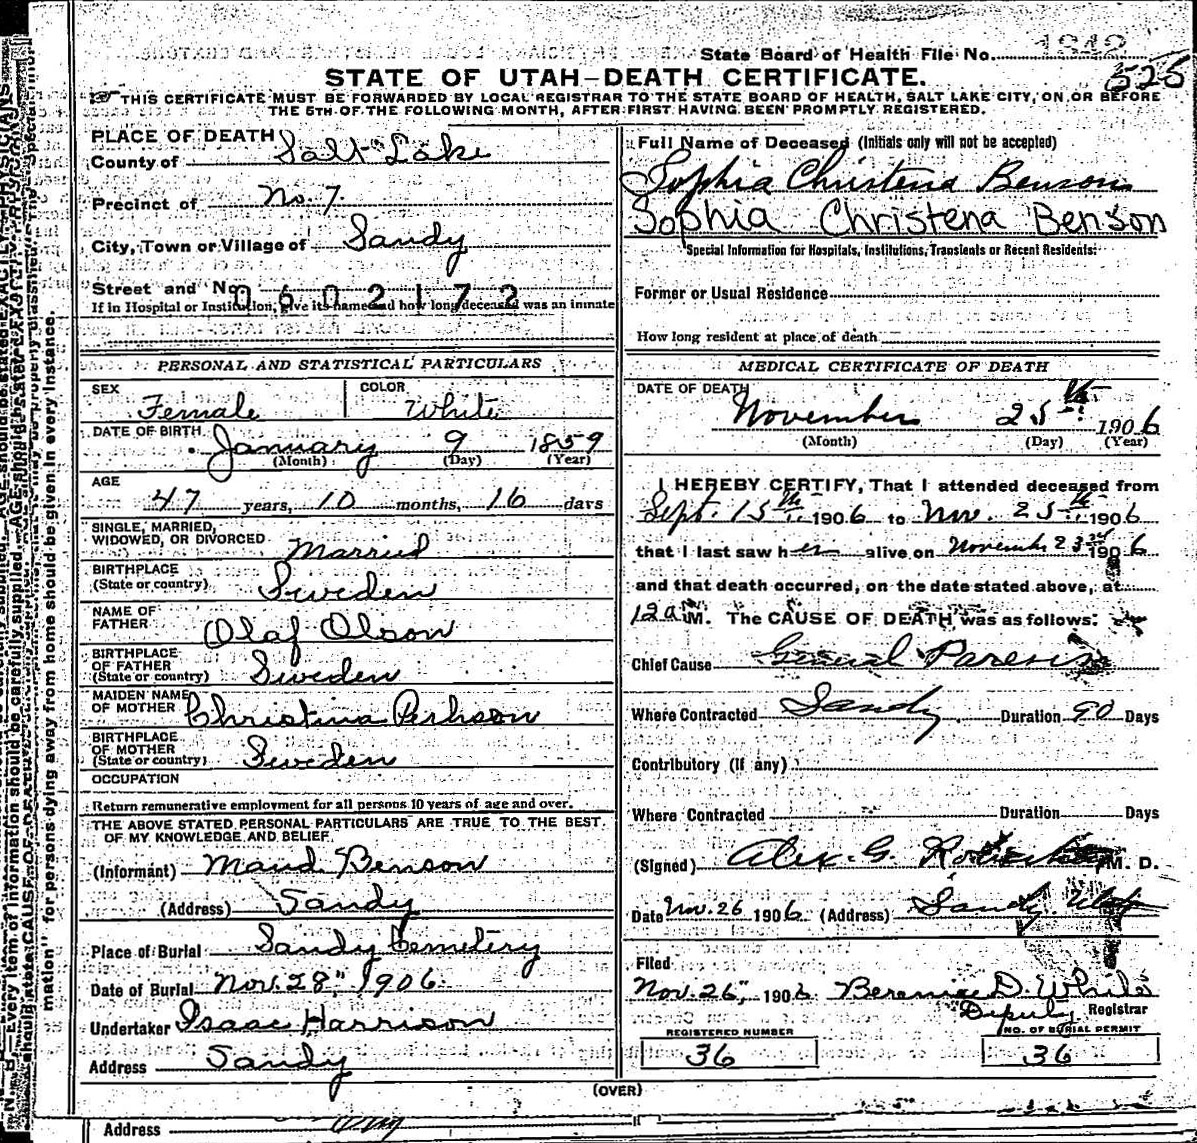 State Board of Health File No. 1242
525
STATE OF UTAH—DEATH CERTIFICATE.
THIS CERTIFICATE MUST BE FORWARDED BY LOCAL REGISTRAR TO THE STATE BOARD OF HEALTH, SALT LAKE CITY, ON OR BEFORE
THE 5TH OF THE FOLLOWING MONTH, AFTER FIRST HAVING BEEN PROMPTLY REGISTERED.
PLACE OF DEATH
County of Salt Lake
Precinct of No. 7.
City, Town or Village of Sandy
Street and No.
0602172
If in Hospital or Institution, give its name and how long deceased was an inmate
PERSONAL AND STATISTICAL PARTICULARS
SEX Female
COLOR White
DATE OF BIRTH January 9 1859
(Month) (Day) (Year)
AGE
47 years, 10 months, 16 days
SINGLE, MARRIED,
WIDOWED, OR DIVORCED Married
BIRTHPLACE
(State or country) Sweden
NAME OF
FATHER Olaf Olson
BIRTHPLACE
OF FATHER
(State or country) Sweden
MAIDEN NAME
OF MOTHER Christina Perhson
BIRTHPLACE
OF MOTHER
(State or country) Sweden
OCCUPATION
Return remunerative employment for all persons 10 years of age and over.
THE ABOVE STATED PERSONAL PARTICULARS ARE TRUE TO THE BEST
OF MY KNOWLEDGE AND BELIEF
(Informant) Maud Benson
(Address) Sandy
Place of Burial Sandy Cemetery
Date of Burial Nov. 28" 1906.
Undertaker Isaac Harrison
Address Sandy
Full Name of Deceased (Initials only will not be accepted)
Sophia Christena Benson
Sophia Christena Benson
Special Information for Hospitals, Institutions, Transients or Recent Residents:
Former or Usual Residence
How long resident at place of death
MEDICAL CERTIFICATE OF DEATH
DATE OF DEATH
November 25th 1906
(Month) (Day) (Year)
I HEREBY CERTIFY, That I attended deceased from
Sept. 15th 1906 to Nov. 25th 1906
that I last saw her alive on November 23rd 1906
and that death occurred, on the date stated above, at
12 a M. The CAUSE OF DEATH was as follows:
Chief Cause General Paresis
Where Contracted Sandy Duration 90 Days
Contributory (If any)
Where Contracted Duration Days
(Signed) Alex. G. M. D.
Date Nov. 26 1906 (Address) Sandy Utah
Filed
Nov. 26", 1906 Berenice D. White
Deputy Registrar
REGISTERED NUMBER
36
NO. OF BURIAL PERMIT
36
(OVER)
Address
mation" for persons dying away from home should be given in every instance.